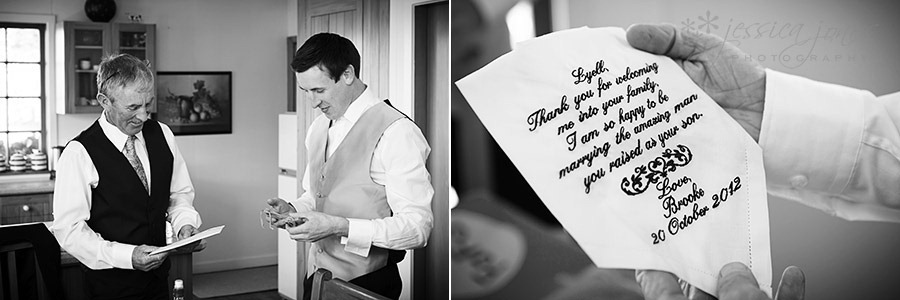 jessica jones
PHOTOGRAPHY
Lyell,
Thank you for welcoming
me into your family.
I am so happy to be
marrying the amazing man
you raised as your son.
Love,
Brooke
20 October 2012